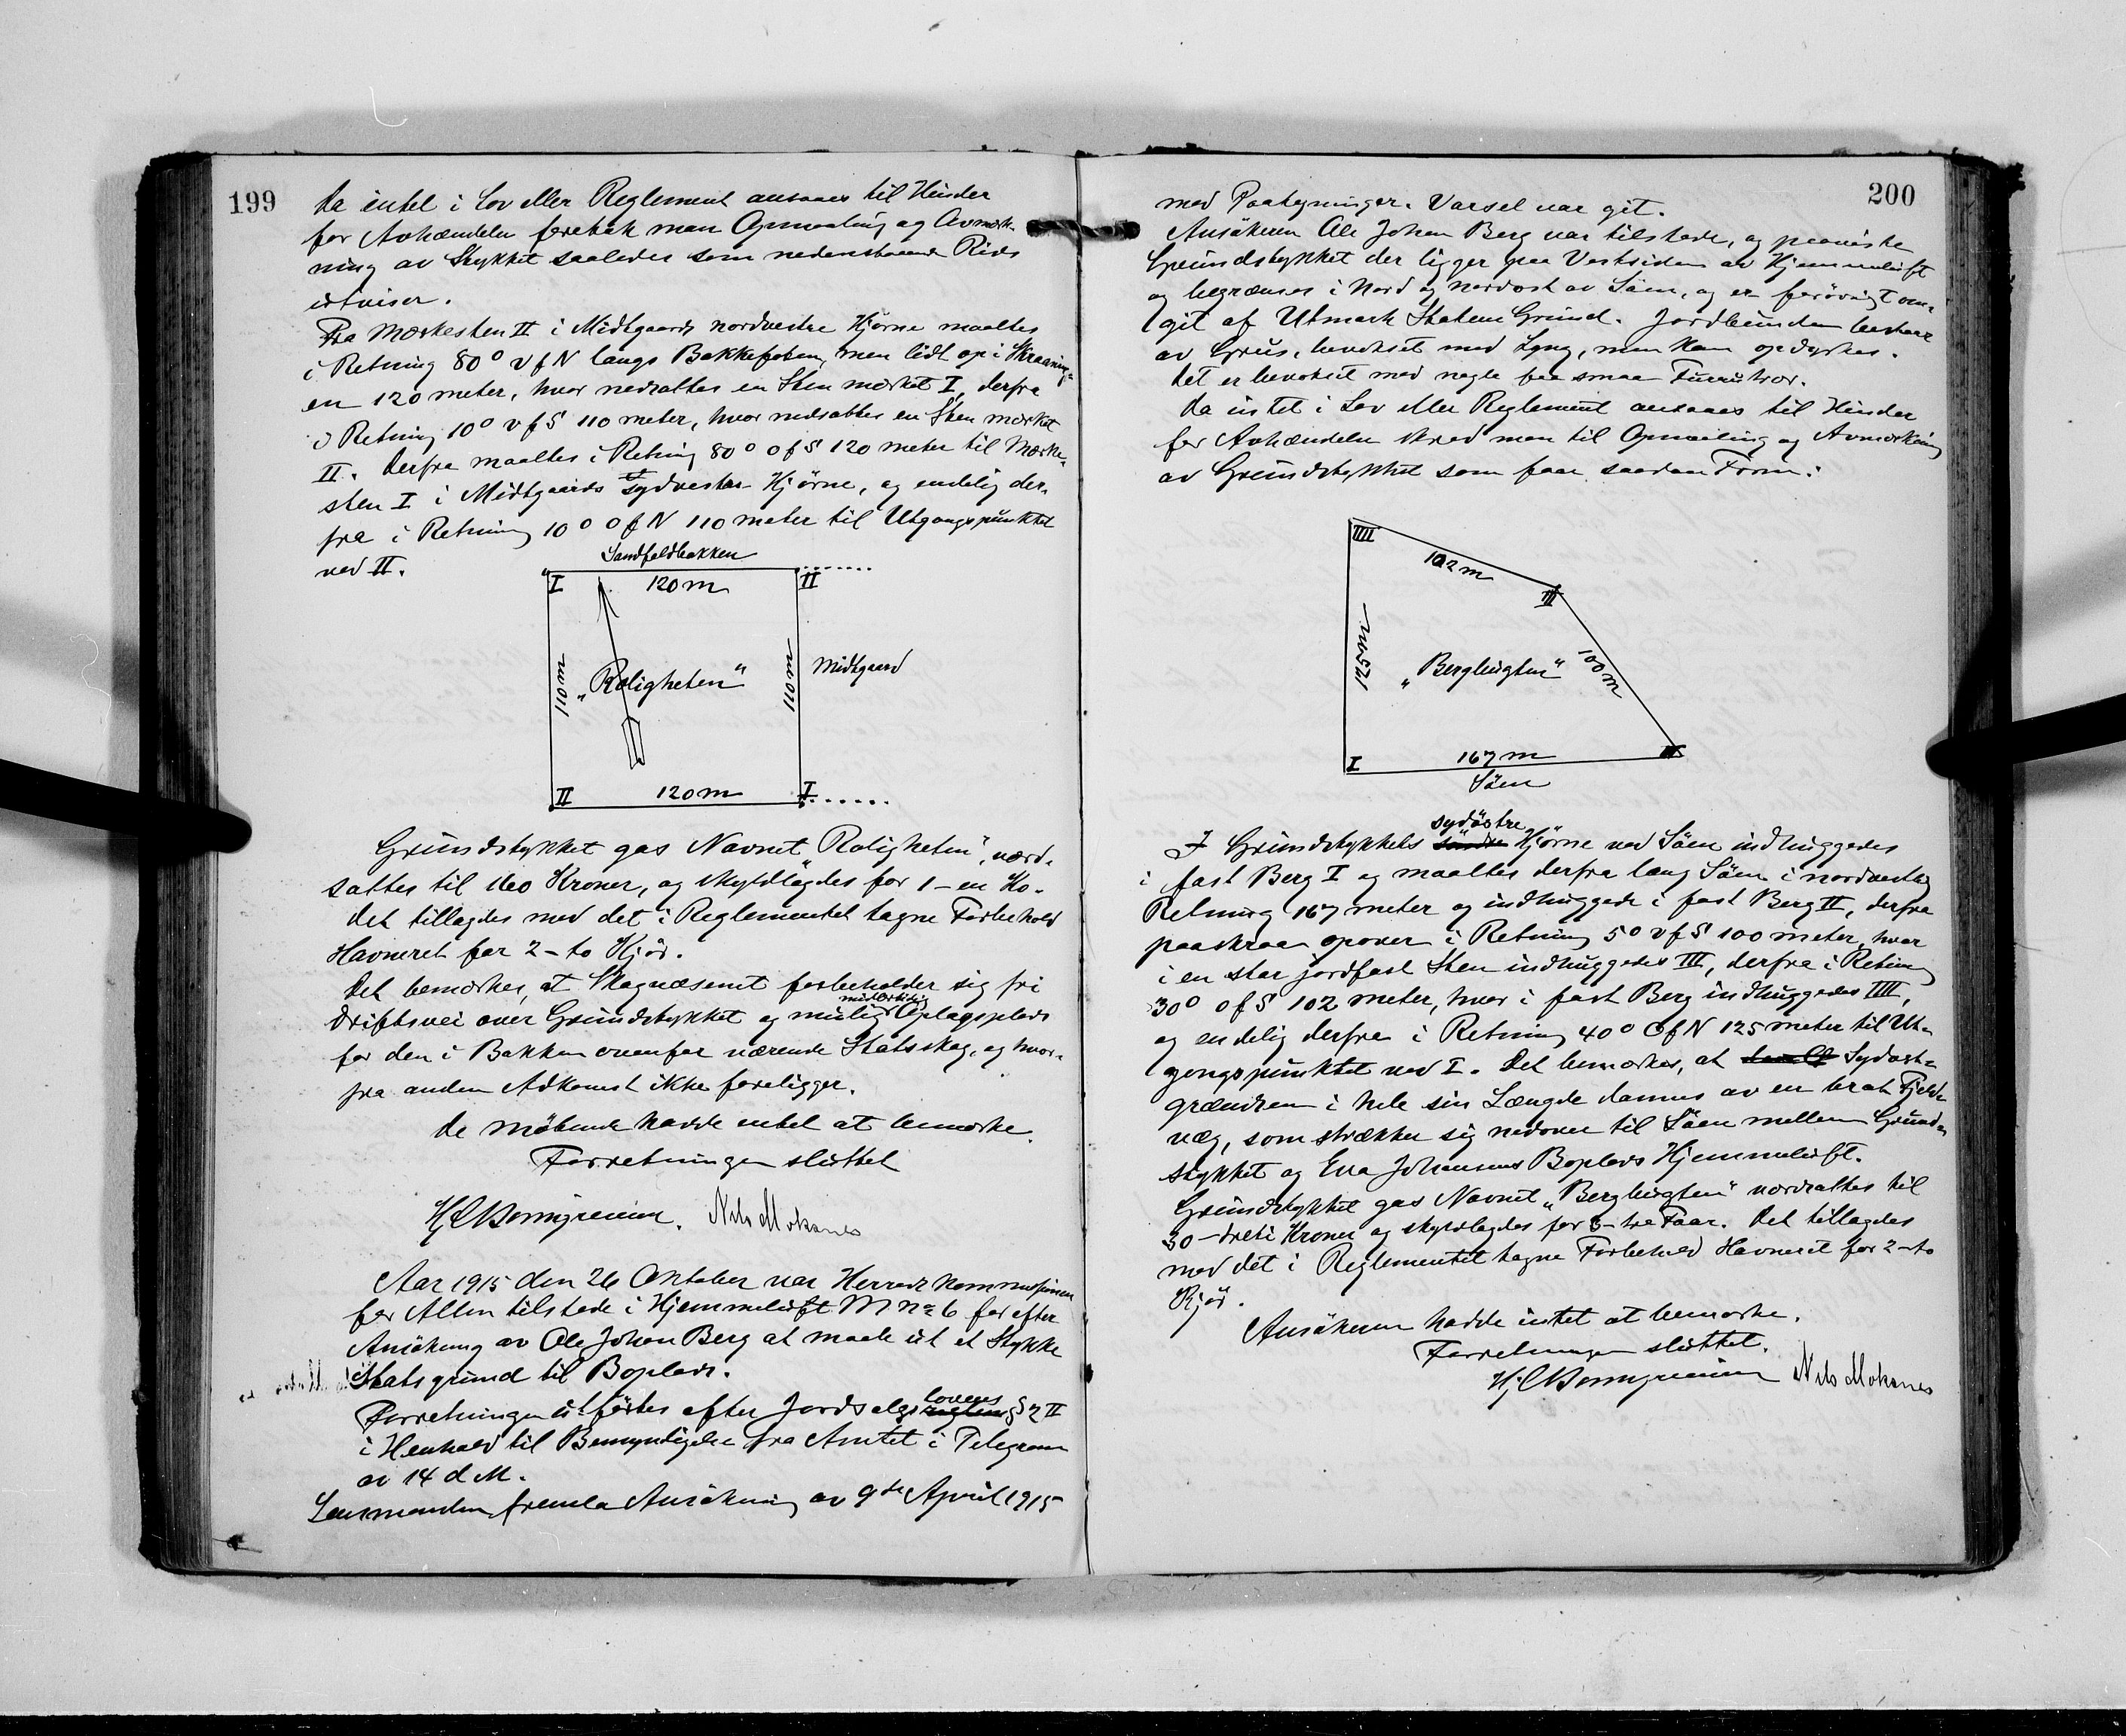 199
da intet i Lov eller Reglement ansaaes til Hinder
for Avhændelse foretok man Opmaaling og Avmerk-
ning av Stykket saaledes som nedenstaaende Rids
utviser.
Fra Merkesten II i Midtgaards nordvestre Hjørne maaltes
i Retning 80° V f N langs Bakkefoten, men lidt op i Skraaning-
en 120 meter, hvor nedsattes en Sten merket I, derfra
i Retning 10° V f S 110 meter, hvor nedsattes en Sten merket
II. Derfra maaltes i Retning 80° O f S 120 meter til Merke-
sten I i Midtgaards sydvestre Hjörne, og endelig der-
fra i Retning 10° O f N 110 meter til Utgangspunktet
ved II.
Sandfeldbakken
I 120 m II
110 m „Roligheten“ 110 m Midtgaard
II 120 m I
Grundstykket gas Navnet „Roligheten“, værd-
sattes til 160 Kroner, og skyldlagdes for 1 - en Ko.
Det tillagdes med det i Reglementet tagne Forbehold
Havneret for 2 - to Kjør.
Det bemerkes, at Skogvæsenet forbeholder sig fri
midlertidig
Driftsvei over Grundstykket og mulig Oplagsplads
for den i Bakken ovenfor værende Statsskog, og hvor-
fra anden Adkomst ikke foreligger.
De mötende hadde intet at bemerke.
Forretningen sluttet
Nils Moksnes
Aar 1915 den 26 Oktober var Herredskommissionen
for Alten tilstede i Hjemmeluft M no 6 for efter
Ansökning av Ole Johan Berg at maale ut et Stykke
Statsgrund til Boplads.
lovens
Forretningen utførtes efter Jordsalgs § 2 II
i Henhold til Bemyndigelse fra Amtet i Telegram
av 14 d M.
Lensmanden fremla Ansökning av 9de April 1915
200
med Paategninger. Varsel var git.
Ansökeren Ole Johan Berg var tilstede, og paaviste
Grundstykket der ligger paa Vestsiden av Hjemmeluft
og begrænses i Nord og nordost av Söen, og er forövrigt om-
git af Utmark Statens Grund. Jordbunden bestaar
av Grus, bevokset med Lyng, men kan opdyrkes.
Det er bevokset med nogle faa smaa Furutrær.
Da intet i Lov eller Reglement ansaaes til Hinder
for Avhændelse skred man til Opmaaling og Avmerkning
av Grundstykket som faar saadan Form:
IIII
102 m
III
125 m „Bergbugten“ 100 m
I 167 m II
Söen
sydöstre
I Grundstykkets söndre Hjörne ved Söen indhuggedes
i fast Berg I og maaltes derfra lang Söen i nordvestlig
Retning 167 meter og indhuggede i fast Berg II, derfra
paaskraa opover i Retning 5° V f S 100 meter, hvor
i en stor jordfast Sten indhuggedes III, derfra i Retning
30° O f S 102 meter, hvor i fast Berg indhuggedes IIII,
og endelig derfra i Retning 40° O f N 125 meter til Ut-
gangspunktet ved I. Det bemerkes, at Sydost-
grændsen i hele sin Længde dannes av en brat Fjeld-
væg, som strækker sig nedover til Söen mellem Grund-
stykket og Eva Johansens Boplads Hjemmeluft.
Grundstykket gas Navnet „Bergbugten“ værdsattes til
30 - treti Kroner og skyldlagdes for 3 - tre Faar. Det tillagdes
med det i Reglementet tagne Forbehold Havneret for 2 - to
Kjør.
Ansökeren hadde intet at bemerke.
Forretningen sluttet.
Nils Moksnes